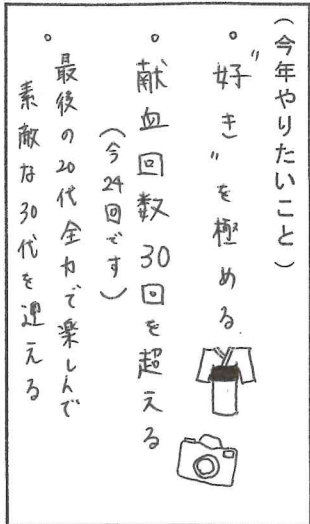 (今年やりたいこと)
。"好き"を極める
。献血回数30回を超える
(今24回です)
。最後の20代全力で楽しんで
素敵な30代を迎える